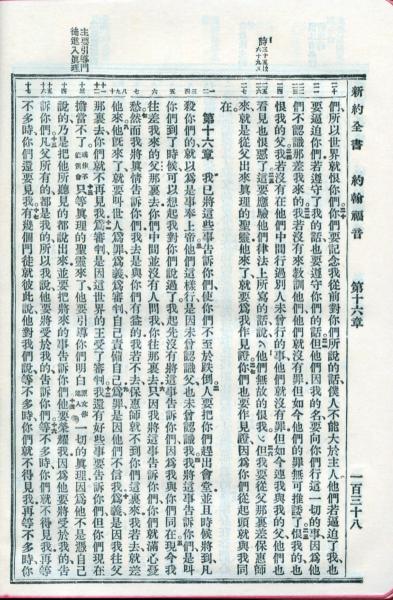 新約全書 約翰福音 第十六章 一百三十八
們所以世界就恨你們你們要記念我從前對你們所說的話僕人不能大於主人他們若逼迫了我也
要逼迫你們若遵守了我的話也要遵守你們的話但他們因我的名要向你們行這一切的事因爲他
們不認識那差我來的我若沒有來教訓他們他們就沒有罪但如今他們的罪無可推諉了恨我的也
恨我的父我若沒有在他們中間行過別人未曾行的事他們就沒有罪但如今連我與我的父他們也
看見也恨惡了這要應驗他們律法上所寫的話說他們無故的恨我但我要從父那裏差保惠師
來就是從父出來眞理的聖靈他來了就要爲我作見證你們也要作見證因爲你們從起頭就與我同
在
第十六章 我已將這些事告訴你們使你們不至於跌倒人要把你們趕出會堂並且時候將到凡
殺你們的就以爲是事奉上帝他們這樣行是因未曾認識父也未曾認識我我將這事告訴你們是叫
你們到了時候可以想起我對你們說過了我起先沒有將這事告訴你們因爲我與你們同在現今我
往差我來的父那裏去你們中間並沒有人問我你往那裏去只因我將這事告訴你們你們就滿心憂
愁然而我將眞情告訴你們我去是與你們有益的我若不去保惠師就不到你們這裏來我若去就差
他來他旣來了就要叫世人爲罪爲義爲審判自己責備自己爲罪是因他們不信我爲義是因我往父
那裏去你們就不再見我爲審判是因這世界的王受了審判我還有好些事要告訴你們但你們現在
擔當不了只等眞理的聖靈來了他要引導你們明白一切的眞理因爲他不是憑自己
說的乃是把他所聽見的都說出來並要把將來的事告訴你們他要榮耀我因爲他要將受於我的告
訴你們凡父所有的都是我的所以我說他要將受於我的告訴你們等不多時你們就不得見我再等
不多時你們還要見我有幾個門徒就彼此說他對我們說等不多時你們就不得見我再等不多時你
引導門
徒進入眞理